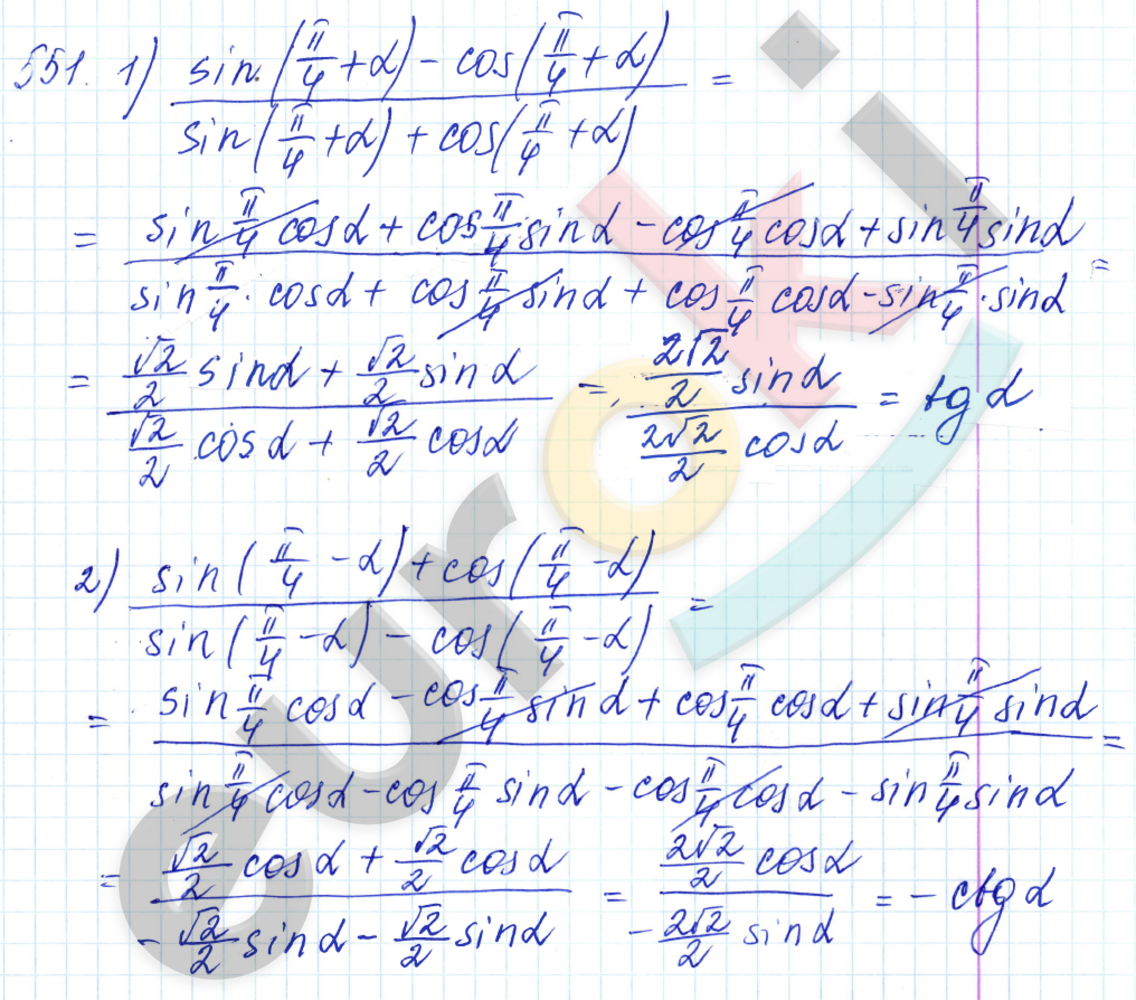 551. 1) (sin(π/4+α) - cos(π/4+α)) / (sin(π/4+α) + cos(π/4+α)) =
= (sin π/4 cosα + cos π/4 sinα - cos π/4 cosα + sin π/4 sinα) / (sin π/4 · cosα + cos π/4 sinα + cos π/4 cosα - sin π/4 · sinα) =
= (√2/2 sinα + √2/2 sinα) / (√2/2 cosα + √2/2 cosα) = (2√2/2 sinα) / (2√2/2 cosα) = tgα
2) (sin(π/4 - α) + cos(π/4 - α)) / (sin(π/4 - α) - cos(π/4 - α)) =
= (sin π/4 cosα - cos π/4 sinα + cos π/4 cosα + sin π/4 sinα) / (sin π/4 cosα - cos π/4 sinα - cos π/4 cosα - sin π/4 sinα) =
= (√2/2 cosα + √2/2 cosα) / (-√2/2 sinα - √2/2 sinα) = (2√2/2 cosα) / (-2√2/2 sinα) = -ctgα
euroki